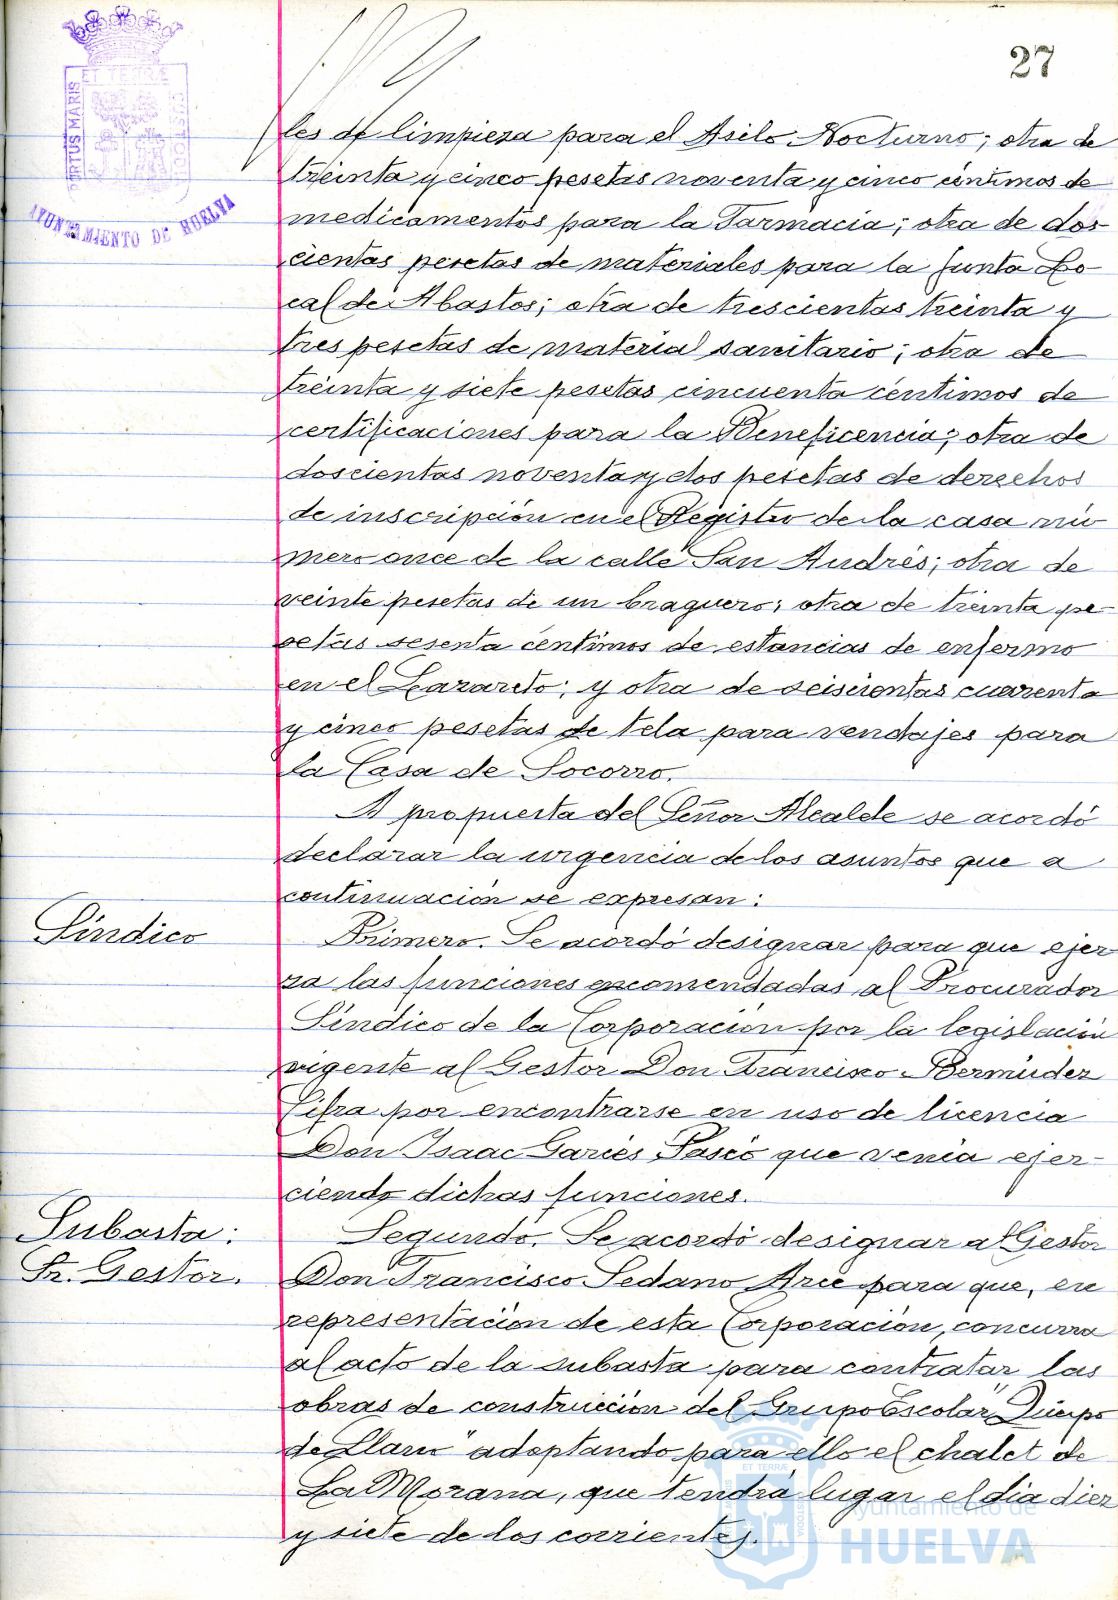 27
PORTUS MARIS
ET TERRÆ
CUSTODIA
AYUNTAMIENTO DE HUELVA
les de limpieza para el Asilo Nocturno; otra de
treinta y cinco pesetas noventa y cinco céntimos de
medicamentos para la Farmacia; otra de dos-
cientas pesetas de materiales para la Junta Lo-
cal de Abastos; otra de trescientas treinta y
tres pesetas de material sanitario; otra de
treinta y siete pesetas cincuenta céntimos de
certificaciones para la Beneficencia; otra de
doscientas noventa y dos pesetas de derechos
de inscripción en el Registro de la casa nú
mero once de la calle San Andrés; otra de
veinte pesetas de un braguero; otra de treinta pe-
setas sesenta céntimos de estancias de enfermo
en el Lazareto; y otra de seiscientas cuarenta
y cinco pesetas de tela para vendajes para
la Casa de Socorro.
A propuesta del Señor Alcalde se acordó
declarar la urgencia de los asuntos que a
continuación se expresan:
Síndico
Primero. Se acordó designar para que ejer
za las funciones encomendadas al Procurador
Síndico de la Corporación por la legislación
vigente al Gestor Don Francisco Bermúdez
Cifra por encontrarse en uso de licencia
Don Isaac Garcés Pascó que venía ejer-
ciendo dichas funciones.
Subasta:
Sr. Gestor.
Segundo. Se acordó designar al Gestor
Don Francisco Sedano Arce para que, en
representación de esta Corporación, concurra
al acto de la subasta para contratar las
obras de construcción del Grupo Escolar "Queipo
de Llano" adoptando para ello el chalet de
La Morana, que tendrá lugar el día diez
y siete de los corrientes.
Ayuntamiento de
HUELVA